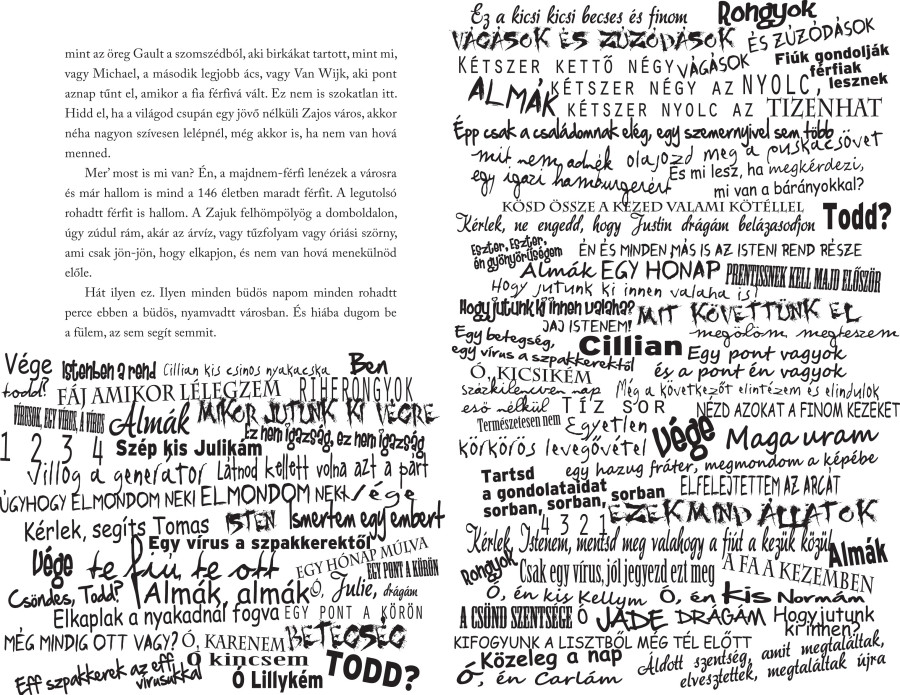 mint az öreg Gault a szomszédból, aki birkákat tartott, mint mi,
vagy Michael, a második legjobb ács, vagy Van Wijk, aki pont
aznap tűnt el, amikor a fia férfivá vált. Ez nem is szokatlan itt.
Hidd el, ha a világod csupán egy jövő nélküli Zajos város, akkor
néha nagyon szívesen lelépnél, még akkor is, ha nem van hová
menned.
Mer’ most is mi van? Én, a majdnem-férfi lenézek a városra
és már hallom is mind a 146 életben maradt férfit. A legutolsó
rohadtt férfit is hallom. A Zajuk felhömpölyög a domboldalon,
úgy zúdul rám, akár az árvíz, vagy tűzfolyam vagy óriási szörny,
ami csak jön-jön, hogy elkapjon, és nem van hová menekülnöd
előle.
Hát ilyen ez. Ilyen minden büdös napom minden rohadtt
perce ebben a büdös, nyamvadtt városban. És hiába dugom be
a fülem, az sem segít semmit.
Vége Istenben a rend Cillian kis csinos nyakacska Ben
todd? FÁJ AMIKOR LÉLEGZEM RIHERONGYOK
VÍRUSOK, EGY VÍRUS, A VÍRUS Almák MIKOR JUTUNK KI VÉGRE
1 2 3 4 Szép kis Julikám ez nem igazság, ez nem igazság
Villog a generátor Látnod kellett volna azt a párt
ÚGYHOGY ELMONDOM NEKI ELMONDOM NEKI Vége
Kérlek, segíts Tomas ISTEN Ismertem egy embert
Vége Egy vírus a szpakkerektől
te fiú te ott EGY HÓNAP MÚLVA EGY PONT A KÖRÖN
Csöndes, Todd? Almák, almák Ó, Julie, drágám
Elkaplak a nyakadnál fogva EGY PONT A KÖRÖN
MÉG MINDIG OTT VAGY? Ó, KARENEM BETEGSÉG
Eff szpakkerek az effi vírusukkal Ó kincsem Ó Lillykém TODD?
Ez a kicsi kicsi becses és finom Rongyok
VÁGÁSOK ÉS ZÚZÓDÁSOK ÉS ZÚZÓDÁSOK
KÉTSZER KETTŐ NÉGY VÁGÁSOK Fiúk gondolják férfiak lesznek
ALMÁK KÉTSZER NÉGY AZ NYOLC,
KÉTSZER NYOLC AZ TIZENHAT
Épp csak a családomnak elég, egy szemernyivel sem több
mit nem adnék olajozd meg a puskacsövet
egy igazi hamburgerért És mi lesz, ha megkérdezi,
mi van a bárányokkal?
KÖSD ÖSSZE A KEZED VALAMI KÖTÉLLEL
Kérlek, ne engedd, hogy Justin drágám belázasodjon Todd?
Eszter, Eszter, én gyönyörűségem ÉN ÉS MINDEN MÁS IS AZ ISTENI REND RÉSZE
Almák EGY HÓNAP PRENTISSNEK KELL MAJD ELŐSZÖR
Hogy jutunk ki innen valaha is!
Hogy jutunk ki innen valaha? MIT KÖVETTÜNK EL
JAJ ISTENEM! megölöm, megteszem
Egy betegség, egy vírus a szpakkerektől Cillian Egy pont vagyok
és a pont én vagyok
Ó, KICSIKÉM
százkilencven nap Még a következőt elintézem és elindulok
eső nélkül TÍZ SOR NÉZD AZOKAT A FINOM KEZEKET
Természetesen nem Egyetlen Vége Maga uram
körkörös levegővétel
egy hazug fráter, megmondom a képébe
Tartsd a gondolataidat sorban, sorban, sorban ELFELEJTETTEM AZ ARCÁT
4 3 2 1 EZEK MIND ÁLLATOK
Kérlek Istenem, mentsd meg valahogy a fiút a kezük közül Almák
Rongyok Csak egy vírus, jól jegyezd ezt meg A FA A KEZEMBEN
Ó, én kis Kellym Ó, én kis Normám
A CSÖND SZENTSÉGE Ó JADE DRÁGÁM Hogy jutunk ki innen?
KIFOGYUNK A LISZTBŐL MÉG TÉL ELŐTT
Közeleg a nap Áldott szentség, amit megtaláltak,
Ó, én Carlám elvesztettek, megtaláltak újra